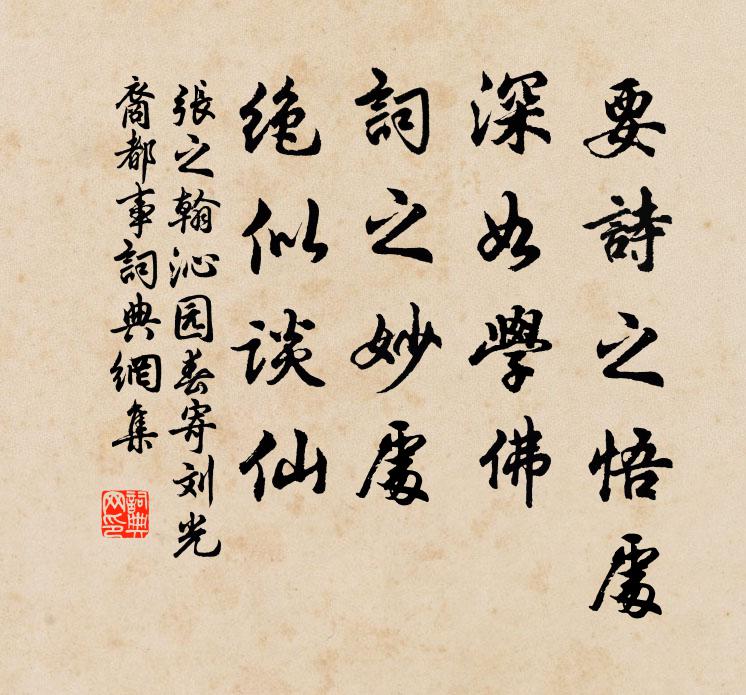 要詩之悟處
深如學佛
詞之妙處
绝似谈仙
張之翰沁园春寄刘光
裔都事詞典網集
詞典网印